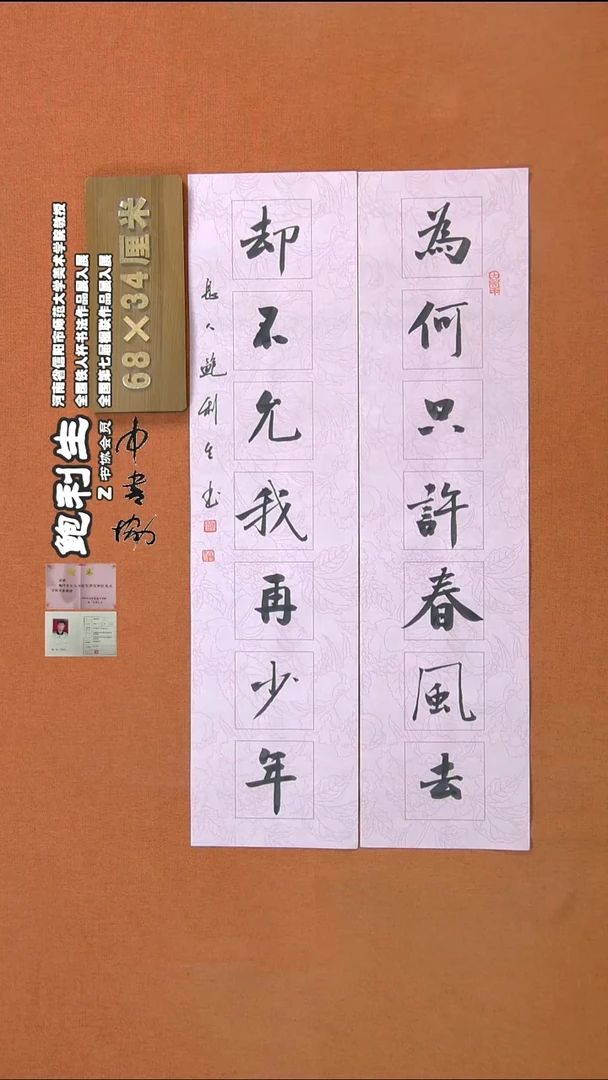 為何只許春風去
却不允我再少年
鮑利生书
68×34厘米
河南省信阳市师范大学美术学院教授
全国铁人杯书法作品展入展
全国第七届楹联作品展入展
鲍利生
Z 书协会员
中书协